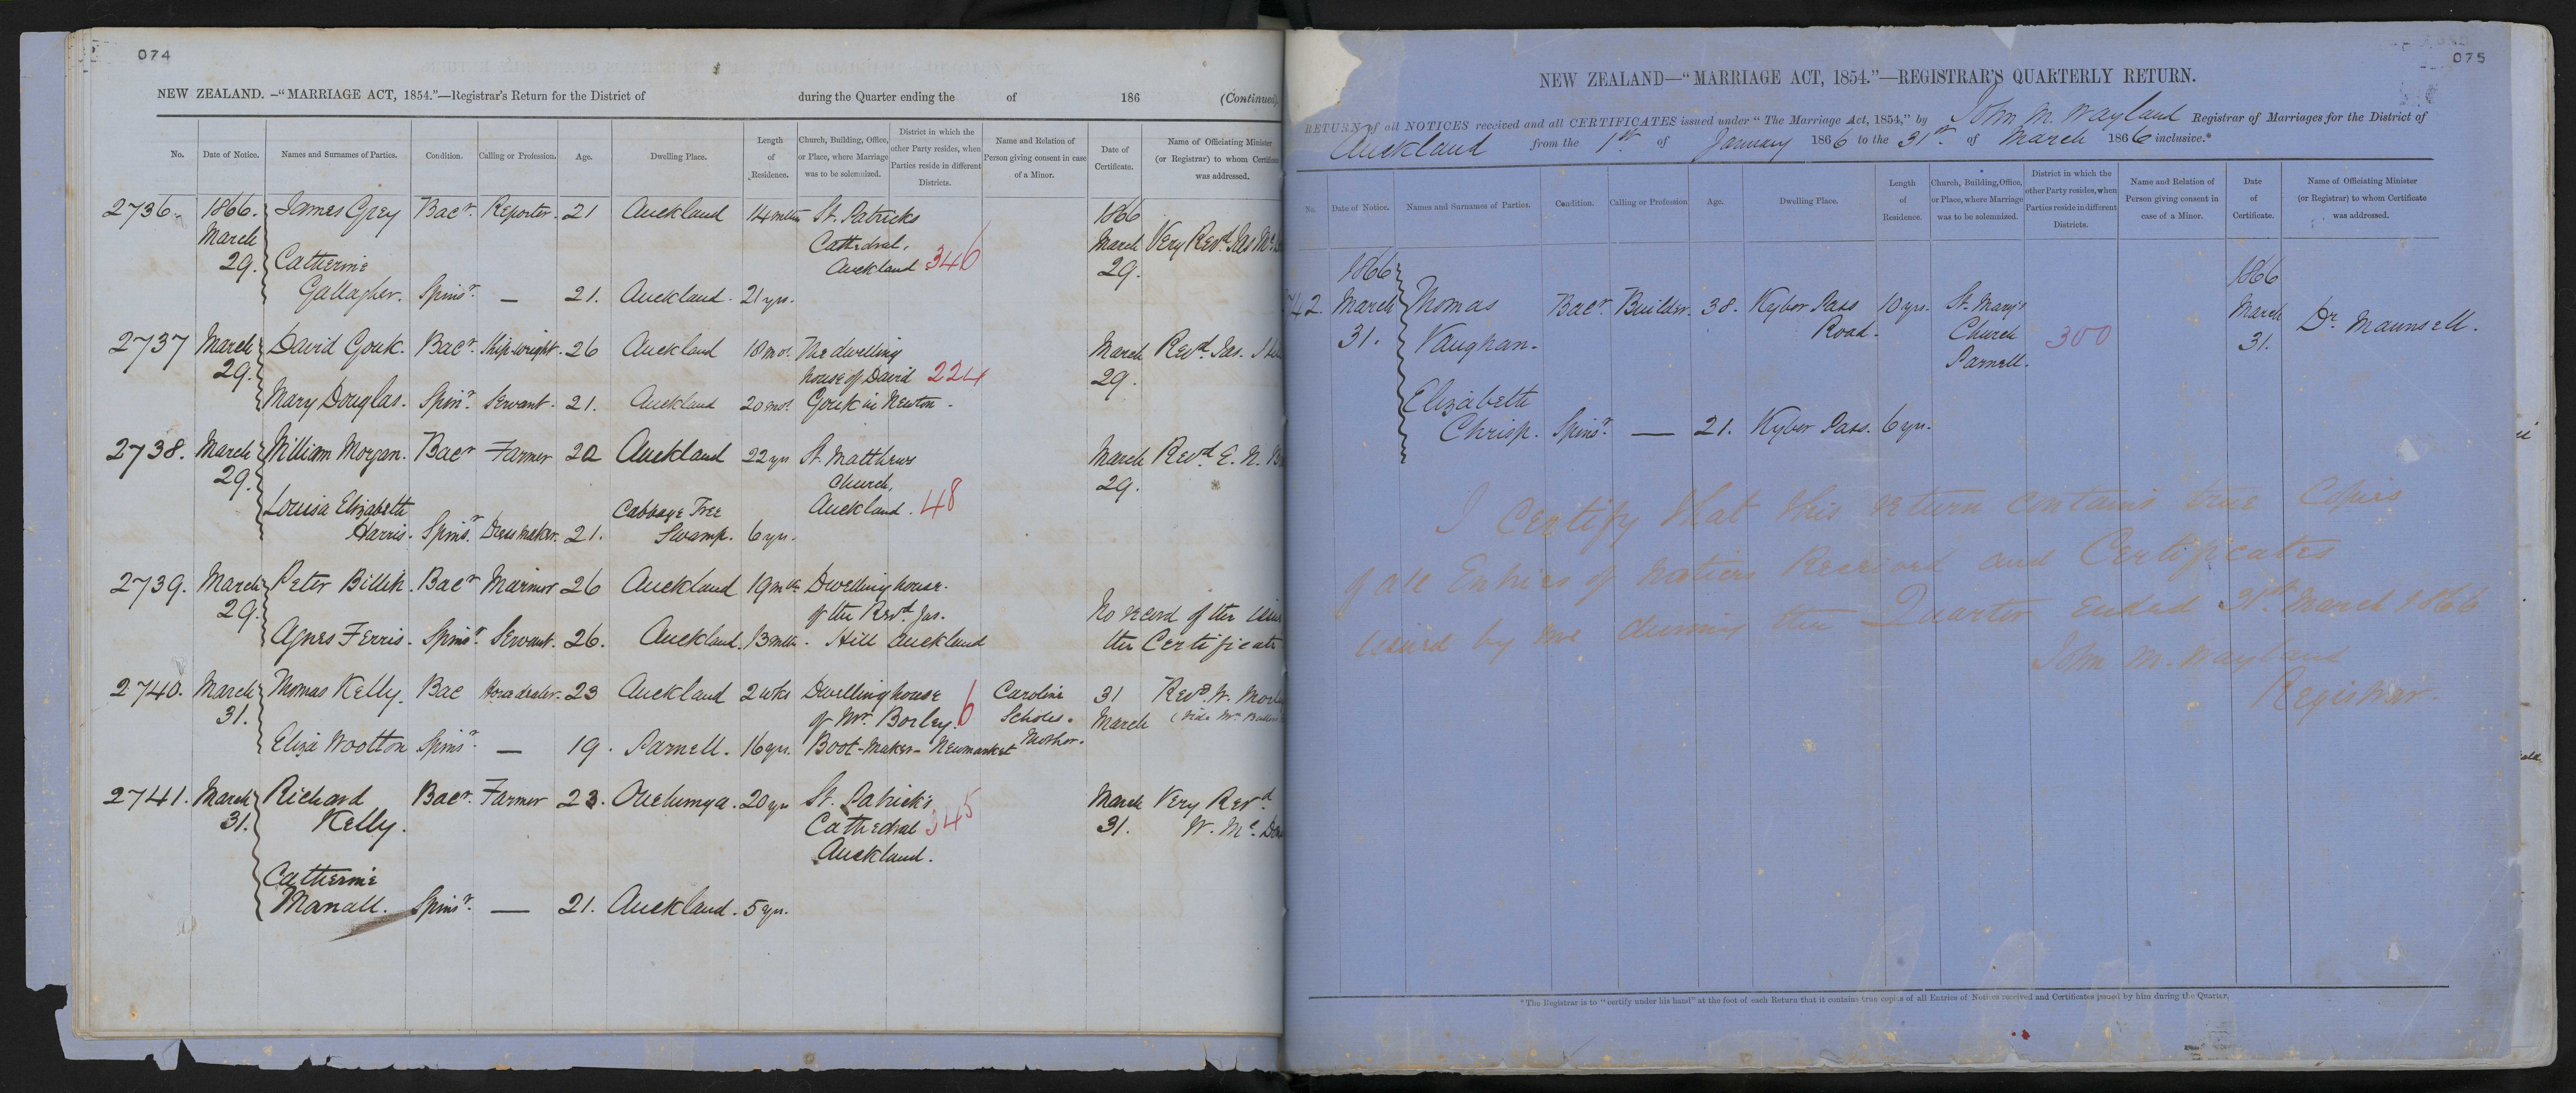 074
NEW ZEALAND.-"MARRIAGE ACT, 1854."—Registrar's Return for the District of during the Quarter ending the of 186 (Continued)
No. Date of Notice. Names and Surnames of Parties. Condition. Calling or Profession. Age. Dwelling Place. Length of Residence. Church, Building, Office, or Place, where Marriage was to be solemnized. District in which the other Party resides, when Parties reside in different Districts. Name and Relation of Person giving consent in case of a Minor. Date of Certificate. Name of Officiating Minister (or Registrar) to whom Certificate was addressed.
2736. 1866. James Grey Bacr. Reporter. 21 Auckland 14 mths St. Patricks 1866
March Cathedral, March Very Revd. Jas Mc.
29. Catherine Auckland 346 29.
Gallagher. Spinsr. — 21. Auckland. 21 yrs.
2737 March David Gouk. Bacr. Ship-wright. 26 Auckland 18 mos. The dwelling March Revd. Jas.
29. house of David 224 29.
Mary Douglas. Spinr. Servant. 21. Auckland 20 mos. Gouk in Newton.
2738. March William Morgan. Bacr Farmer 22 Auckland 22 yrs St. Matthews March Revd. E. N.
29. Church, 29.
Louisa Elizabeth Cabbage Tree Auckland. 48
Harris. Spinsr. Dressmaker. 21. Swamp. 6 yrs.
2739. March Peter Billih. Bacr Mariner 26 Auckland 19 mths Dwelling house.
29. of the Revd. Jas. No record of the
Agnes Ferris. Spinsr. Servant. 26. Auckland. 13 mths. Hill Auckland the Certificate
2740. March Thomas Kelly. Bac Horsedealer. 23 Auckland 2 wks Dwelling house Caroline 31 Revd. W.
31. of Mr. Borley. 6 Scholes. March
Eliza Wootton Spinsr. — 19. Parnell. 16 yrs. Boot-Maker-Newmarket Mother.
2741. March Richard Bacr. Farmer 23. Onehunga. 20 yrs St. Patrick's March Very Revd.
31. Kelly. Cathedral 345 31. W. Mc.
Auckland.
Catherine
Manall. Spinsr. — 21. Auckland. 5 yrs.
075
NEW ZEALAND—"MARRIAGE ACT, 1854."—REGISTRAR'S QUARTERLY RETURN.
RETURN of all NOTICES received and all CERTIFICATES issued under "The Marriage Act, 1854," by John M. Wayland Registrar of Marriages for the District of
Auckland from the 1st of January 1866 to the 31st. of March 1866 inclusive.*
No. Date of Notice. Names and Surnames of Parties. Condition. Calling or Profession Age. Dwelling Place. Length of Residence. Church, Building, Office, or Place, where Marriage was to be solemnized. District in which the other Party resides, when Parties reside in different Districts. Name and Relation of Person giving consent in case of a Minor. Date of Certificate. Name of Officiating Minister (or Registrar) to whom Certificate was addressed.
1866 1866
42. March Thomas Bacr Builder. 38. Kyber Pass 10 yrs. St. Mary's March Dr. Maunsell.
31. Vaughan. Road. Church 300 31.
Parnell.
Elizabeth
Chrisp. Spinsr. — 21. Kyber Pass. 6 yrs.
I Certify that this return contains true Copies
of all Entries of Notices Received and Certificates
issued by me during the Quarter ended 31st March 1866
John M. Wayland
Registrar.
*The Registrar is to "certify under his hand" at the foot of each Return that it contains true copies of all Entries of Notices received and Certificates issued by him during the Quarter.